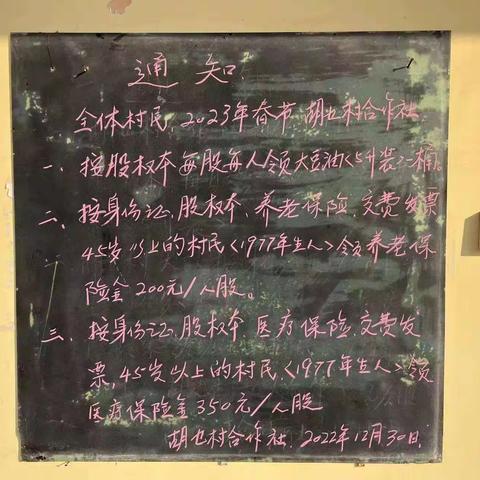 通知
全体村民，2023年春节，胡也村合作社
一、按股权本每股每人领大豆油<5升装>一桶。
二、按身份证、股权本、养老保险，交费发票
45岁以上的村民<1977年生人>领养老保
险金200元/人股。
三、按身份证、股权本医疗保险，交费发
票，45岁以上的村民，<1977年生人>领
医疗保险金350元/人股
胡也村合作社，2022年12月30日